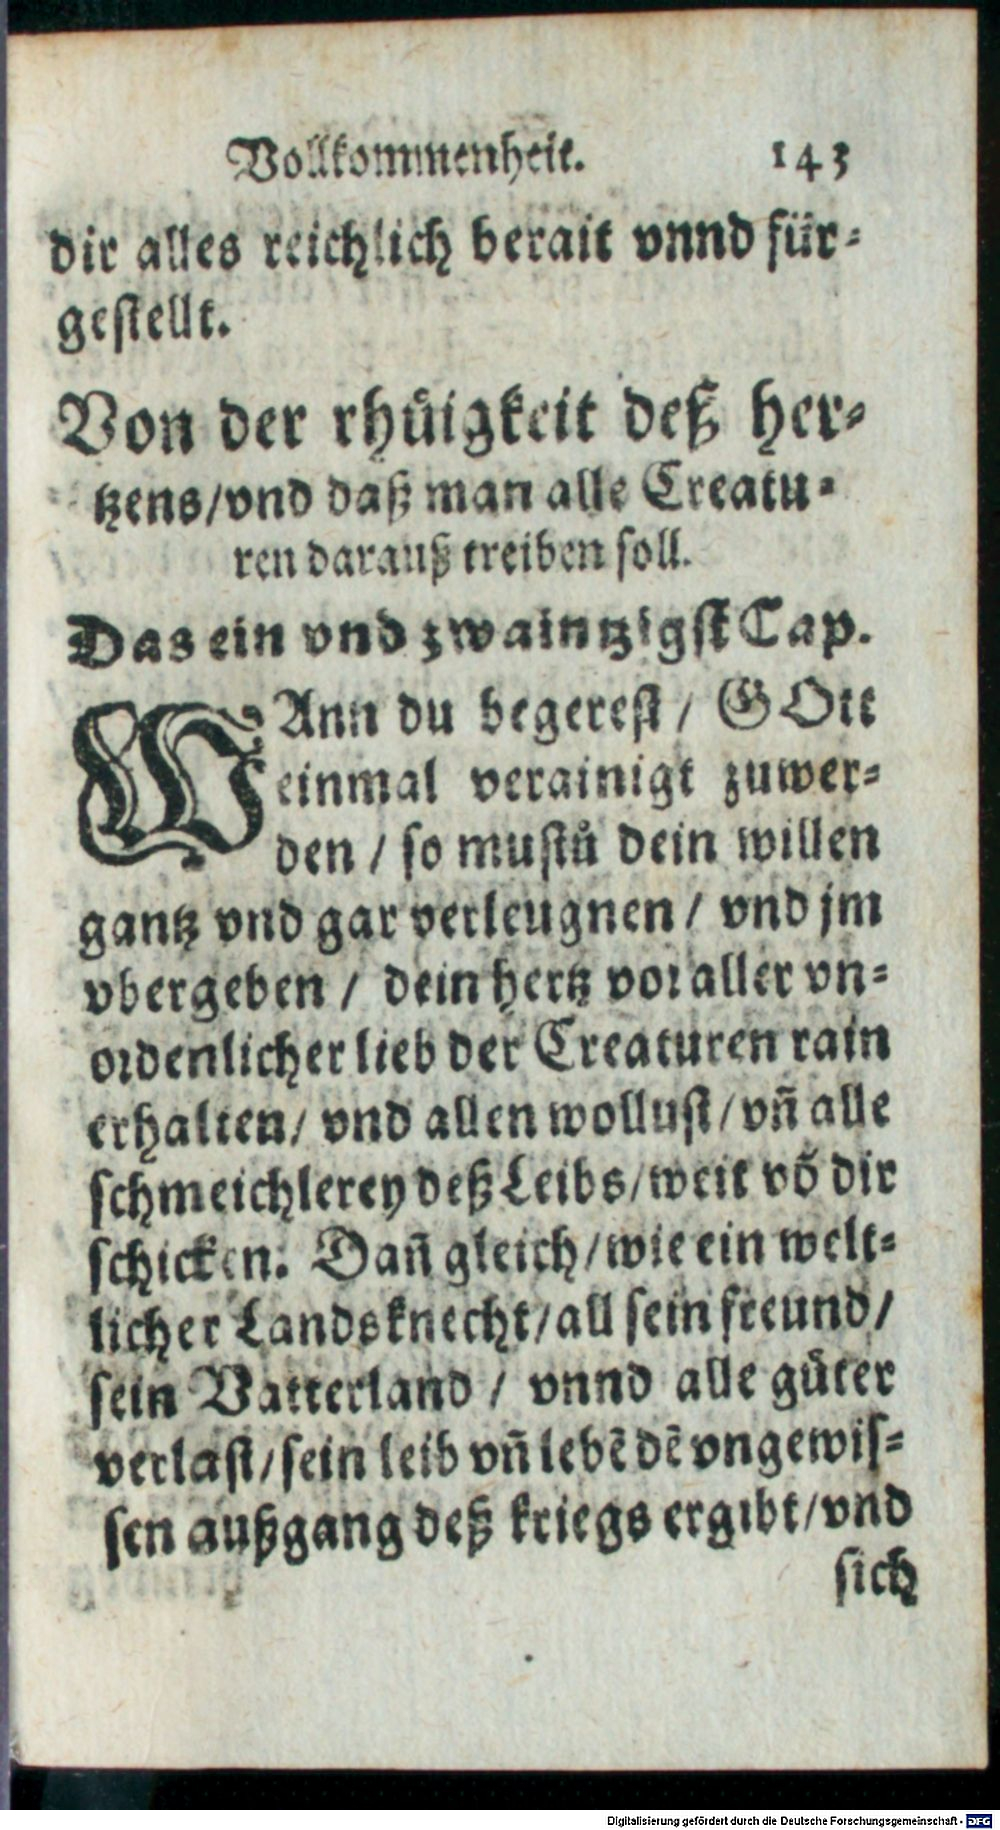 Vollkommenheit. 143
dir alles reichlich berait vnnd für-
gestellt.
Von der rhůigkeit deß her-
tzens/vnd daß man alle Creatu-
ren darauß treiben soll.
Das ein vnd zwaintzigst Cap.
WAnn du begerest / GOtt
einmal verainigt zuwer-
den / so mustů dein willen
gantz vnd gar verleugnen / vnd jm
vbergeben / dein hertz vor aller vn-
ordenlicher lieb der Creaturen rain
erhalten/ vnd allen wollust/vñ alle
schmeichlerey deß Leibs/weit võ dir
schicken. Dañ gleich/wie ein welt-
licher Landsknecht/all sein freund/
sein Vatterland / vnnd alle gůter
verlast/sein leib vñ lebẽ dẽ vngewis-
sen außgang deß kriegs ergibt/vnd
sich
Digitalisierung gefördert durch die Deutsche Forschungsgemeinschaft - DFG